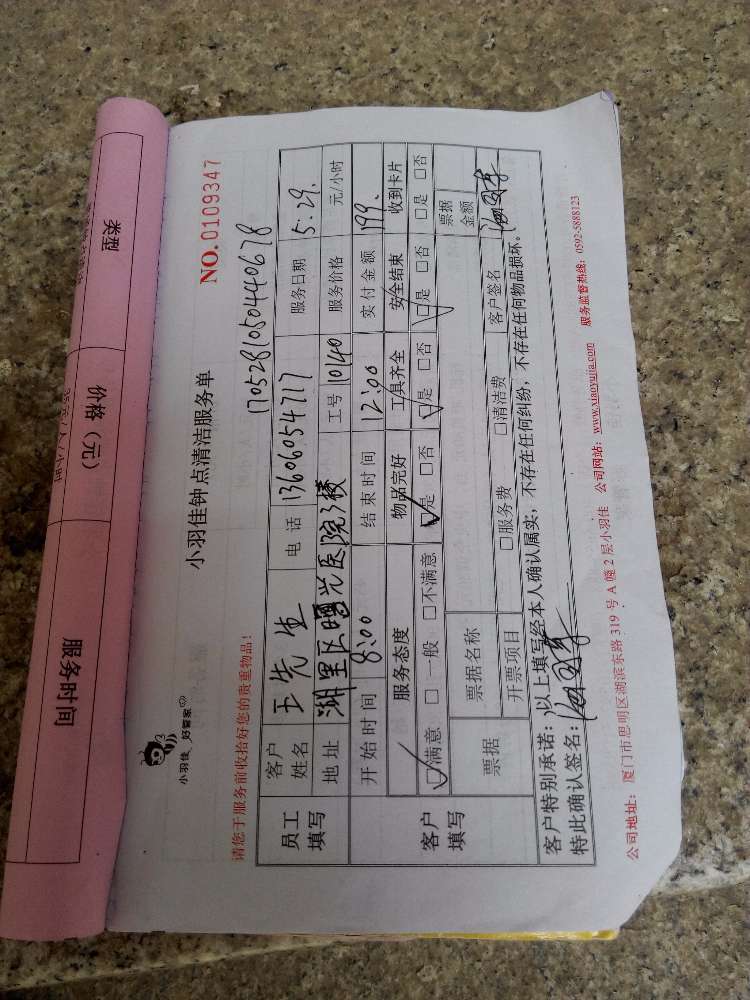 类型
价格（元）
服务时间
小羽佳 好管家
小羽佳钟点清洁服务单
NO.0109347
请您于服务前收拾好您的贵重物品！
170528105044067​8
员工填写
客户姓名 王先生 电话 13606054717 服务日期 5.29.
地址 湖里区曙光医院3楼 工号 10140 服务价格 元/小时
客户填写
开始时间 8:00 结束时间 12:00 实付金额 199.
服务态度 物品完好 工具齐全 安全结束 收到卡片
☑满意 □一般 □不满意 ☑是 □否 ☑是 □否 ☑是 □否 □是 □否
票据 票据名称 票据金额
开票项目 □服务费 □清洁费 客户签名
客户特别承诺：以上填写经本人确认属实，不存在任何纠纷，不存在任何物品损坏。
特此确认签名：
公司地址：厦门市思明区湖滨东路 319 号 A 幢 2 层小羽佳 公司网站：www.xiaoyujia.com 服务监督热线：0592-5888123